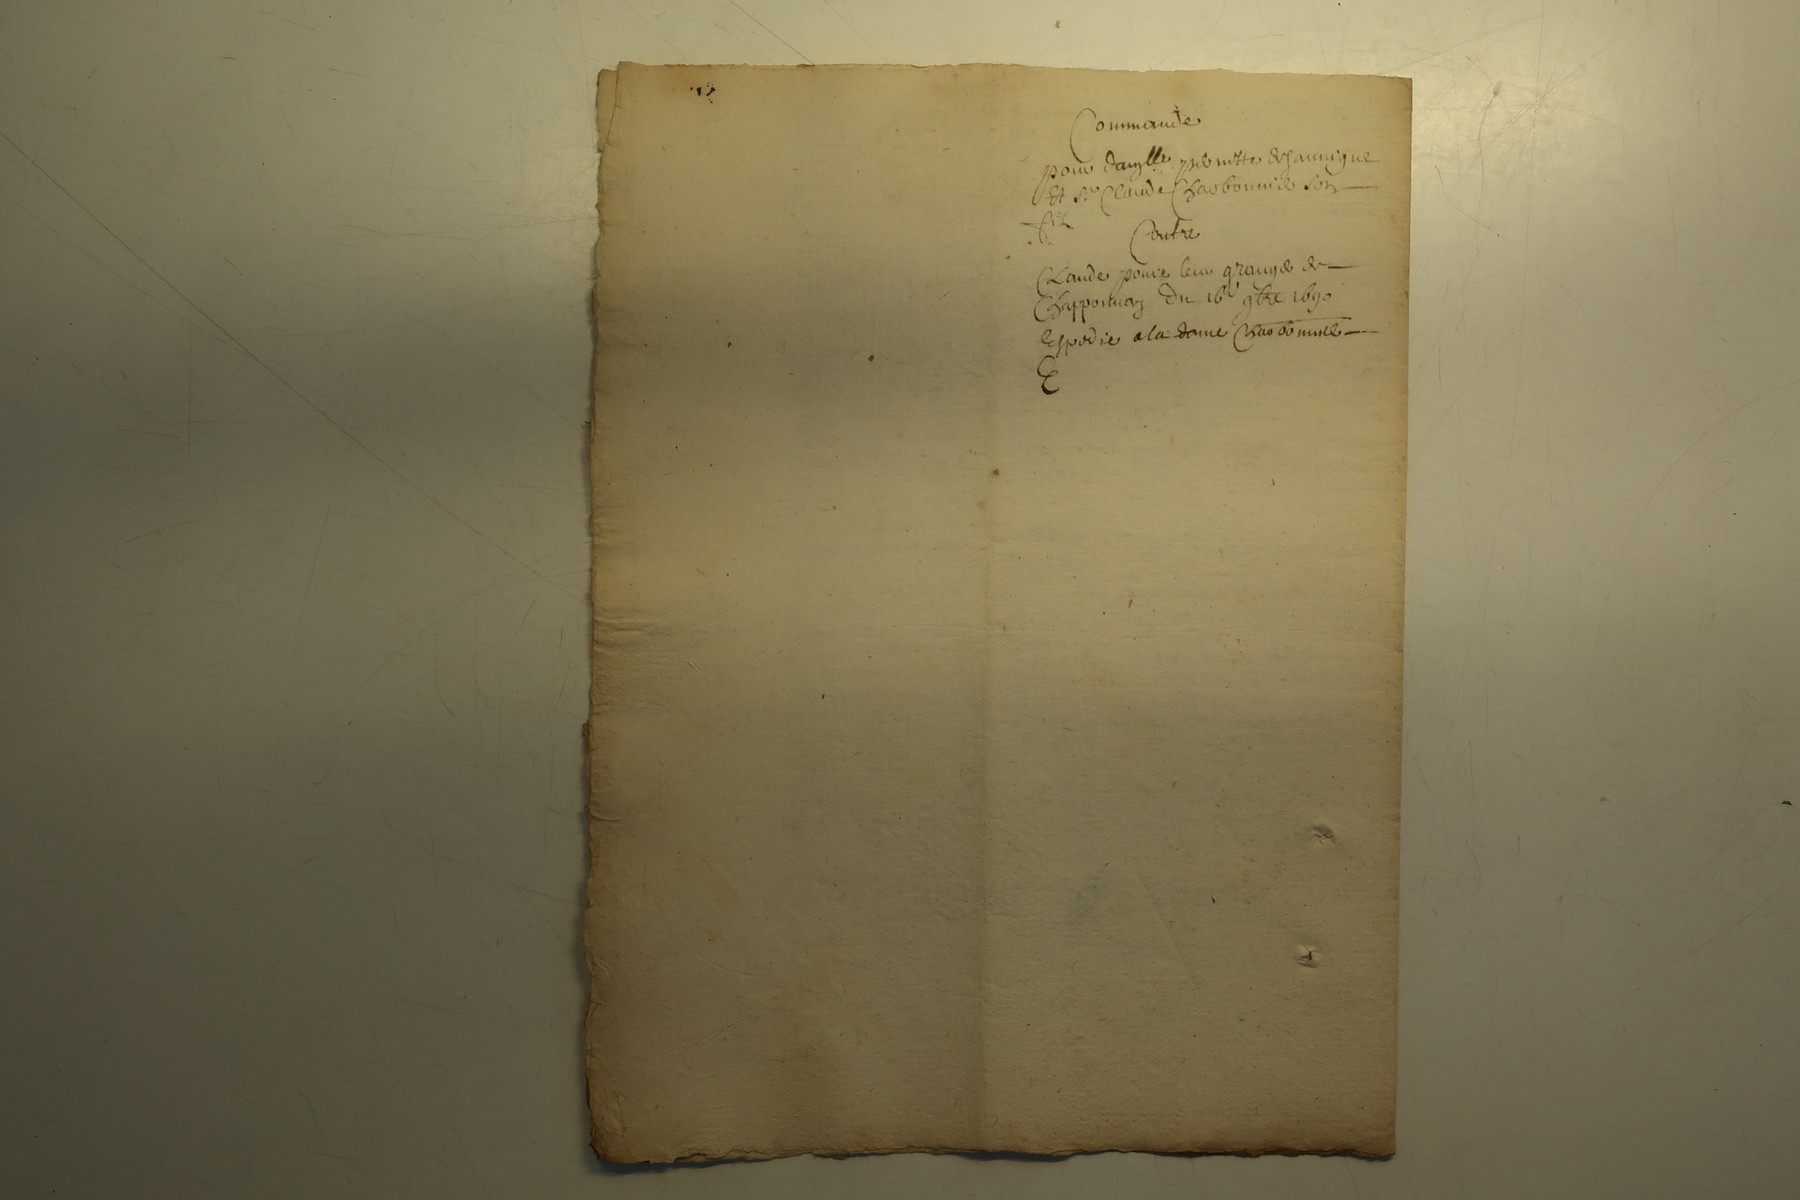 Commande
pour damlle pernette dejanuigne
Et Sr Claude Charbonnie son
fil
Contre
Claude ponce leur granger de
Chappornay du 16e 9bre 1690
Espedie a la dame Charbonnie
E